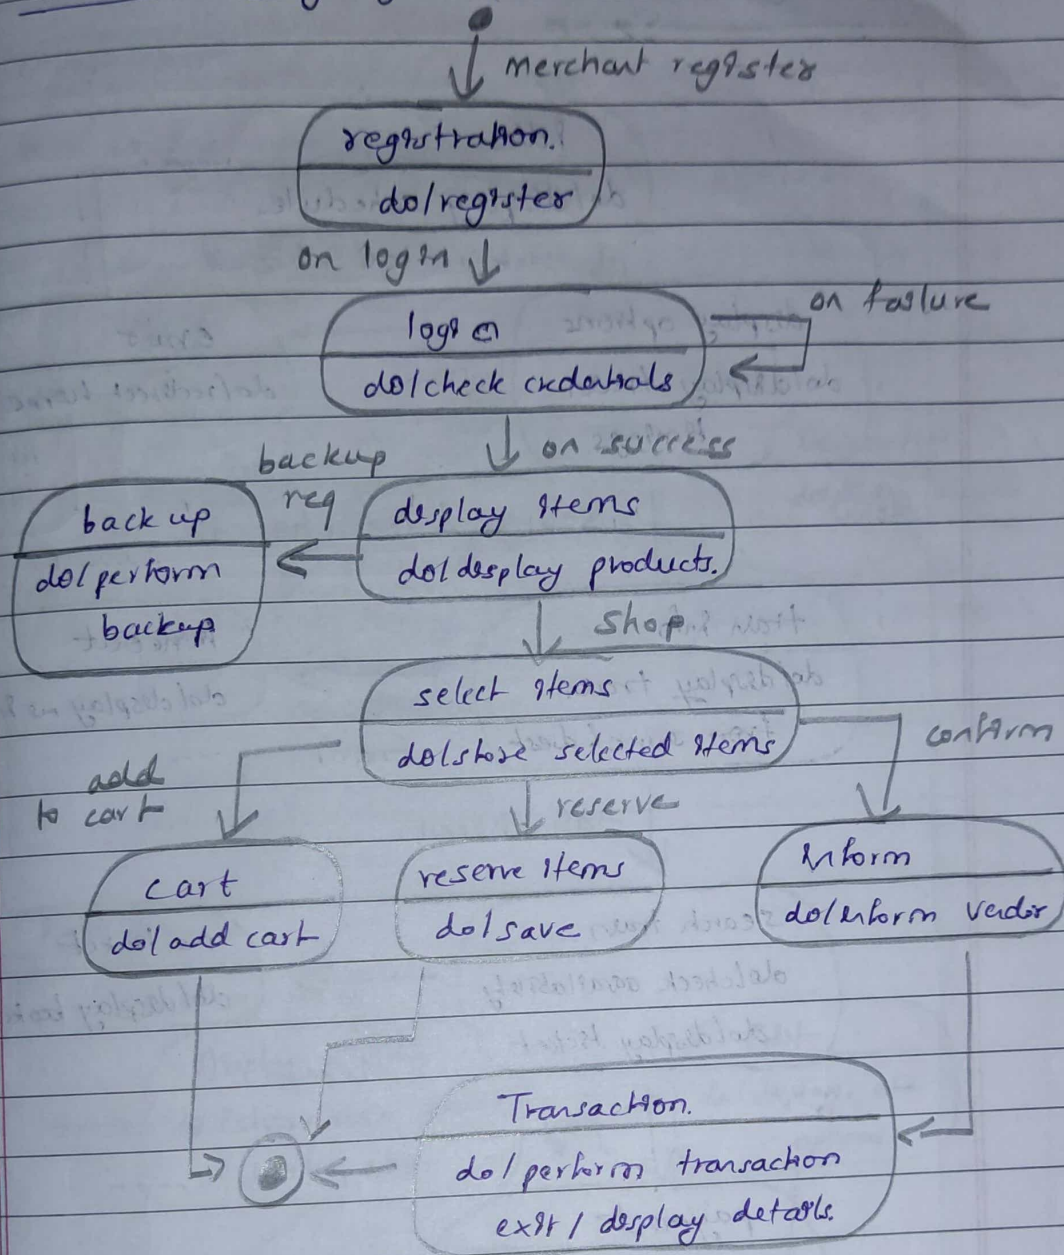 merchant register
registration.
do/register
on login
on failure
login
do/check credentials
on success
backup
req
back up
do/perform
backup
display items
do/display products.
shop
select items
do/store selected items
confirm
add
to cart
reserve
cart
do/add cart
reserve items
do/save
Inform
do/inform vendor
Transaction.
do/perform transaction
exit / display details.